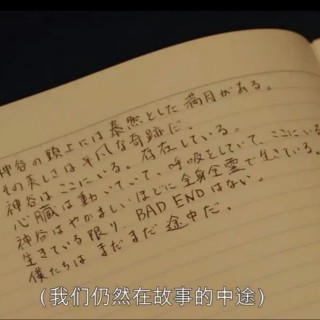 神谷の頭上には泰然とした満月がある。
その美しさは平凡な奇跡だ。
神谷はここにいる。存在している。
心臓は動いていて、呼吸をしていて、ここにいる。
神谷はやかましいほどに全身全霊で生きている。
生きている限り、BAD ENDはない。
僕たちはまだまだ途中だ。
（我们仍然在故事的中途）